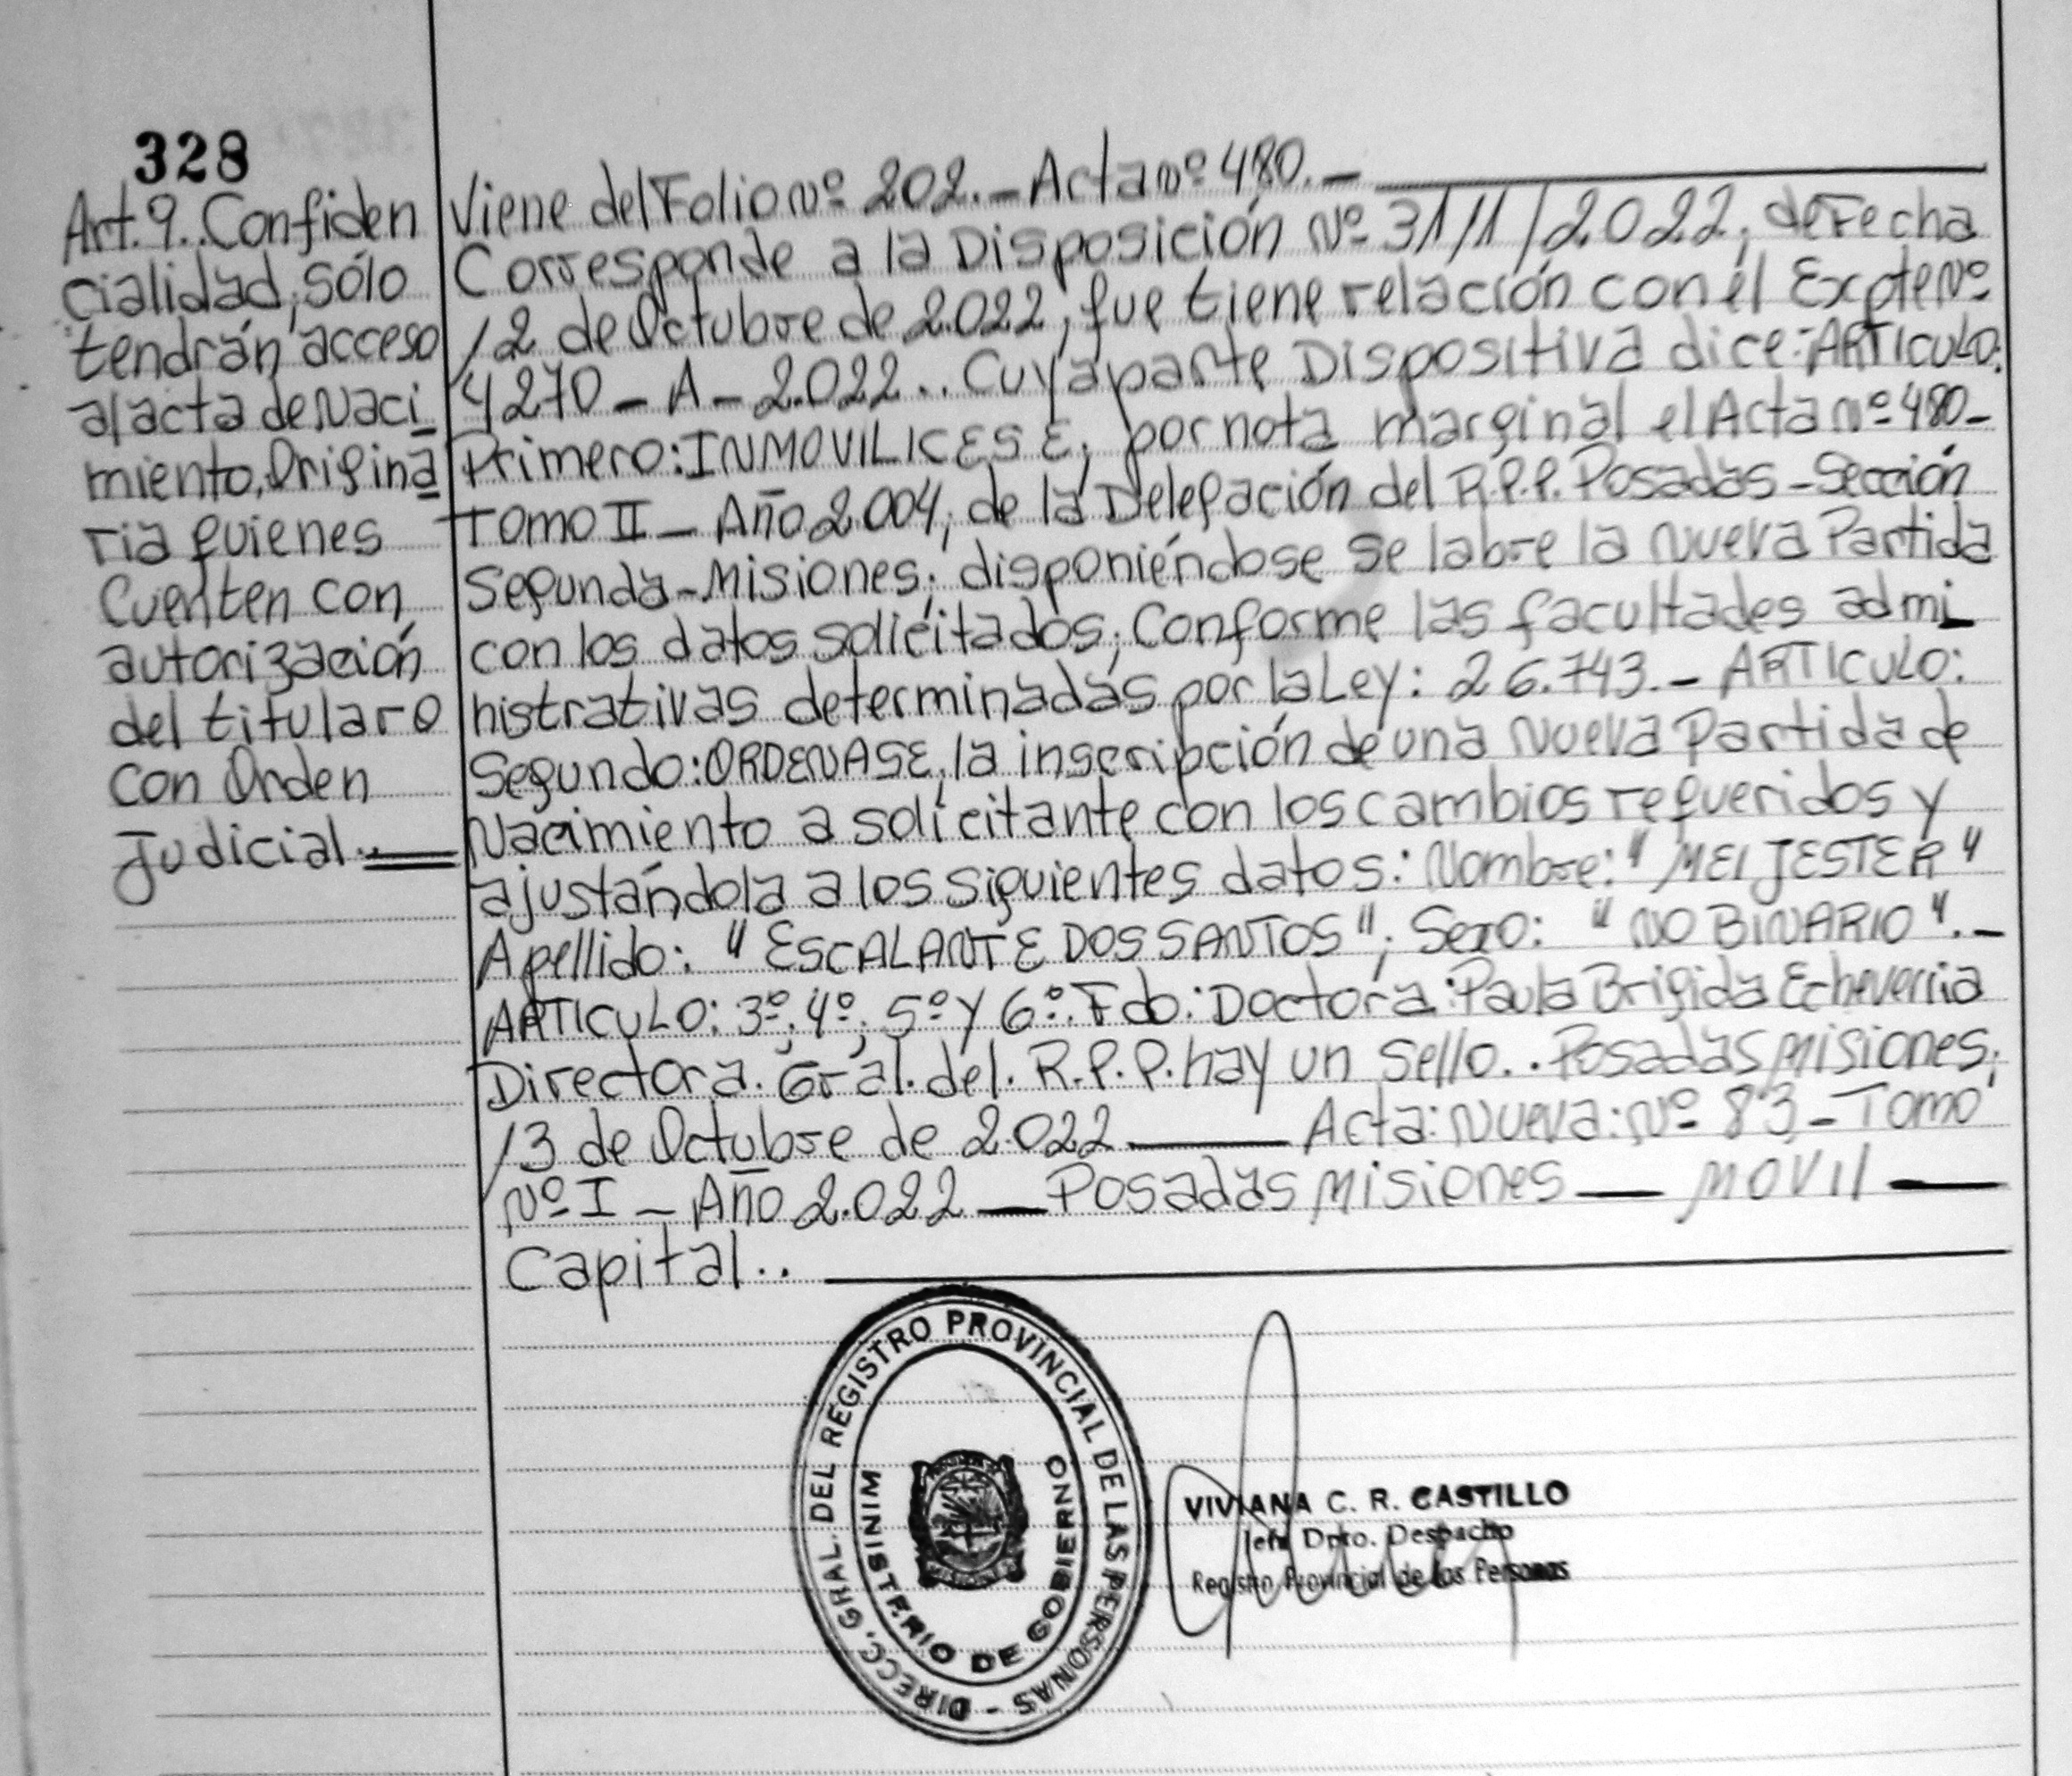 328
Art. 9.. Confiden
cialidad, sólo
tendrán acceso
al acta de Naci_
miento, Origina
ria quienes
Cuenten con
autorización
del titular o
Con Orden
Judicial..
Viene del Folio Nº 202.- Acta nº 480.-
Corresponde a la Disposición Nº 3111/2.022, de Fecha
12 de Octubre de 2.022, que tiene relación con el Expte Nº
4270-A-2.022.. Cuya parte Dispositiva dice: ARTICULO:
Primero: INMOVILICESE, por nota marginal el Acta nº 480-
TOMO II - Año 2.004, de la Delegación del R.P.P. Posadas - Sección
Segunda - Misiones, disponiéndose se labre la Nueva Partida
con los datos solicitados, Conforme las facultades admi_
nistrativas determinadas por la Ley: 26.743.- ARTICULO:
Segundo: ORDENASE, la inscripción de una Nueva Partida de
Nacimiento a solicitante con los cambios requeridos y
ajustándola a los siguientes datos: Nombre: "MEI JESTER"
Apellido: "ESCALANTE DOS SANTOS", Sexo: "NO BINARIO".-
ARTICULO: 3º, 4º, 5º y 6º. Fdo: Doctora: Paula Brigida Echeverria
Directora. Gral. del. R.P.P. hay un Sello.. Posadas Misiones,
13 de Octubre de 2.022 — Acta: Nueva: Nº 83 - Tomo
Nº I - Año 2.022 — Posadas Misiones — MOVIL —
Capital..
DIRECC. GRAL. DEL REGISTRO PROVINCIAL DE LAS PERSONAS -
MINISTERIO DE GOBIERNO
VIVIANA C. R. CASTILLO
Jefa Dpto. Despacho
Registro Provincial de las Personas